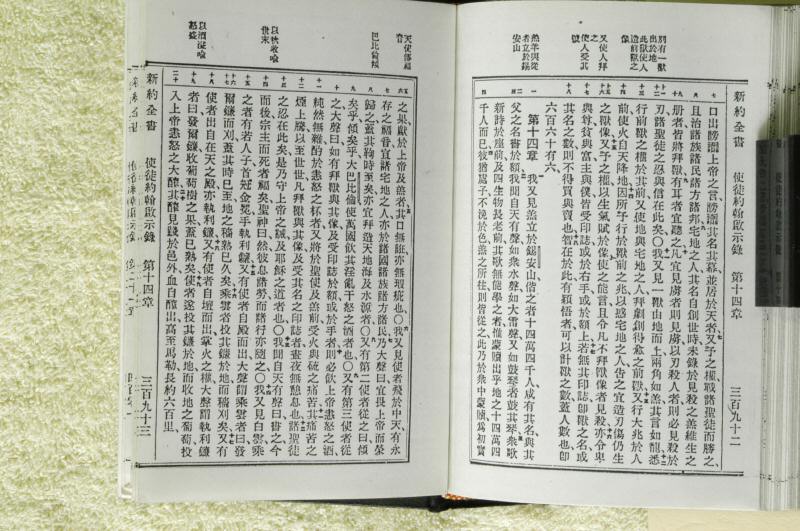 新約全書　使徒約翰啟示錄　第十三章　三百九十二
別有一獸
出於地
此獸使人
造前獸之
像
又使人拜
之
使人受其
號
羔羊與從
者立於錫
安山
口出謗讟上帝之言謗讟其名其幕並居於天者又予之權戰諸聖徒而勝之
且治諸族諸民諸方諸邦宅地之人其名自創世時未錄於見殺之羔維生之
册者皆將拜獸有耳者宜聽之凡宜見虜者則見虜以刃殺人者則必見殺於
刃諸聖徒之忍與信在此矣〇我又見一獸由地而上兩角如羔其言如龍悉
行前獸之權於其前又使地與宅地之人拜劇創得愈之前獸又行大兆於人
前使火自天降地因所予行於獸前之兆以惑宅地之人告之宜造刃傷仍生
之獸像又予之權以生氣賦於像使之能言且令凡不拜獸像者見殺亦令卑
與尊貧與富主與僕皆受印誌或於右手或於額上若無其印誌卽獸之名或
其名之數則不得買與賣也智在於此有穎悟者可以計獸之數蓋人數也卽
六百六十有六
第十四章　我又見羔立於錫安山偕之者十四萬四千人咸有其名與其
父之名書於額我聞自天有聲如衆水聲又如大雷聲又如鼓琴者鼓其琴衆歌
新詩於座前及四生物長老前其歌無能學之者惟蒙贖出乎地之十四萬四
千人而已彼猶處子不浼於色羔之所往則皆從之此乃於衆中蒙贖爲初實
天使傳福
音
巴比倫傾
以秋收喻
世末
以酒淫喻
怒盛
之果獻於上帝及羔者其口無誑亦無瑕疵也〇我又見使者飛於中天有永
存之福音宜諸宅地之人亦於諸國諸族諸方諸民乃大聲曰宜畏上帝而榮
歸之蓋其鞫時至矣亦宜拜造天地海及水源者〇又有第二使者從之曰傾
矣乎傾矣乎大巴比倫使萬國飲其淫亂干怒之酒者也〇又有第三使者從
之大聲曰如有拜獸與其像及受印誌於額或於手者則必飲上帝恚怒之酒
純然無雜酌於恚怒之杯者又將於聖使及羔前受火與硫之痛苦其痛苦之
煙上騰以至世世凡拜獸與其像及受其名之印誌者晝夜無憩息也諸聖徒
之忍在此矣是乃守上帝之誡及耶穌之道者也〇我聞自天有聲曰書之今
而後宗主而死者福矣聖神曰然彼息諸勞而諸行亦隨之〇我又見白雲乘
之者有若人子首冠金冕手執利鐮又有使者自殿而出大聲謂乘雲者曰發
爾鐮而刈蓋其時已至地之穡熟已久矣乘雲者投其鐮於地而穡刈矣又有
使者出自在天之殿亦執利鐮又有使者自壇而出掌火之權大聲謂執利鐮
者曰發爾鐮收葡萄樹之果蓋已熟矣使者遂投其鐮於地而收地之葡萄投
入上帝恚怒之大醡其醡見踐於邑外血自醡出高至馬勒長約六百里
新約全書　使徒約翰啟示錄　第十四章　三百九十三